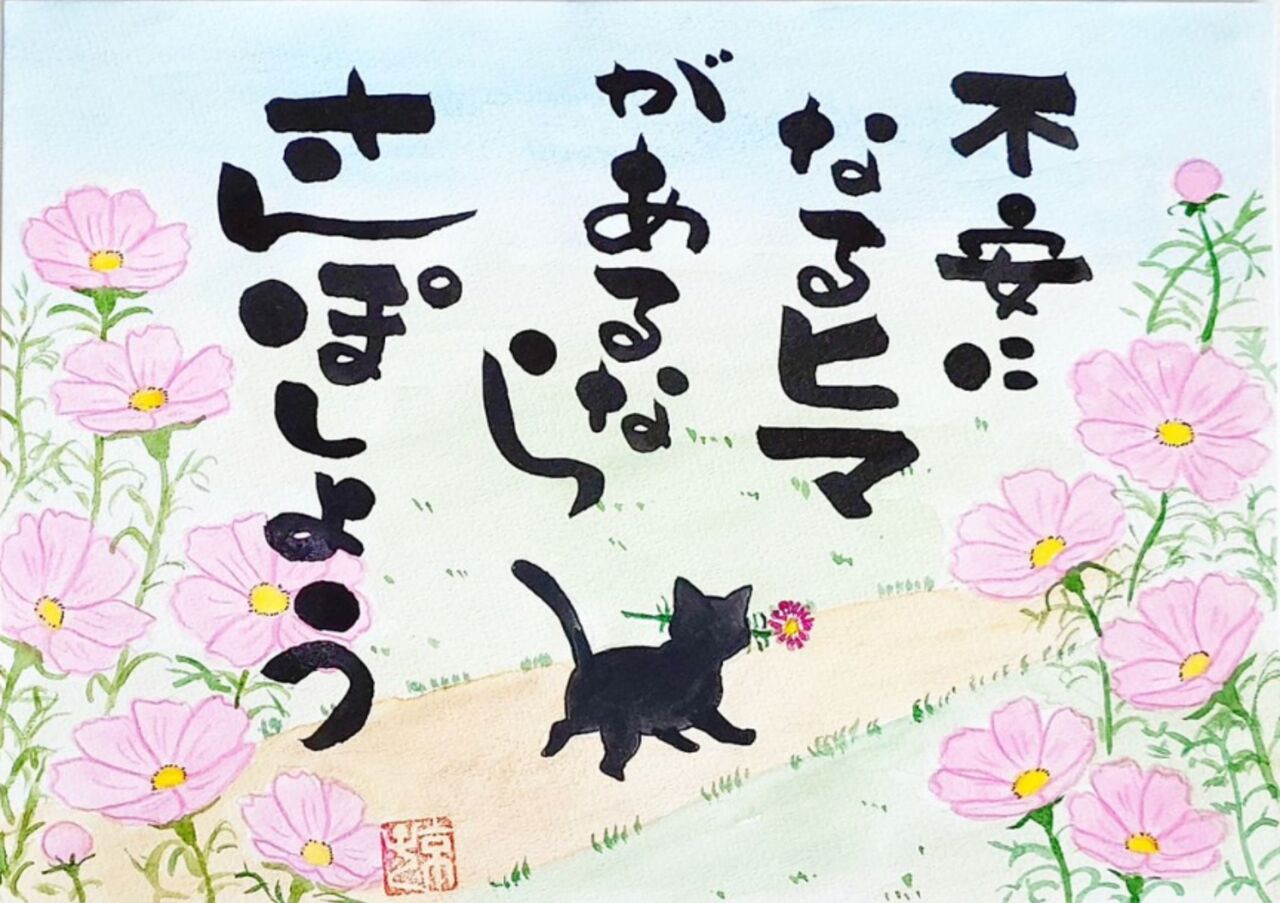 不安に
なるヒマ
があるなら
さんぽしましょう